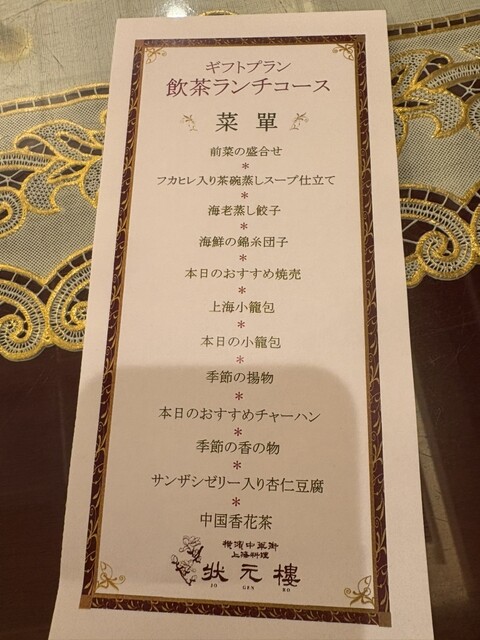 ギフトプラン
飲茶ランチコース
菜單
前菜の盛合せ
*
フカヒレ入り茶碗蒸しスープ仕立て
*
海老蒸し餃子
*
海鮮の錦糸団子
*
本日のおすすめ焼売
*
上海小籠包
*
本日の小籠包
*
季節の揚物
*
本日のおすすめチャーハン
*
季節の香の物
*
サンザシゼリー入り杏仁豆腐
*
中国香花茶
横濱中華街
上海料理
状元樓
JO GEN RO